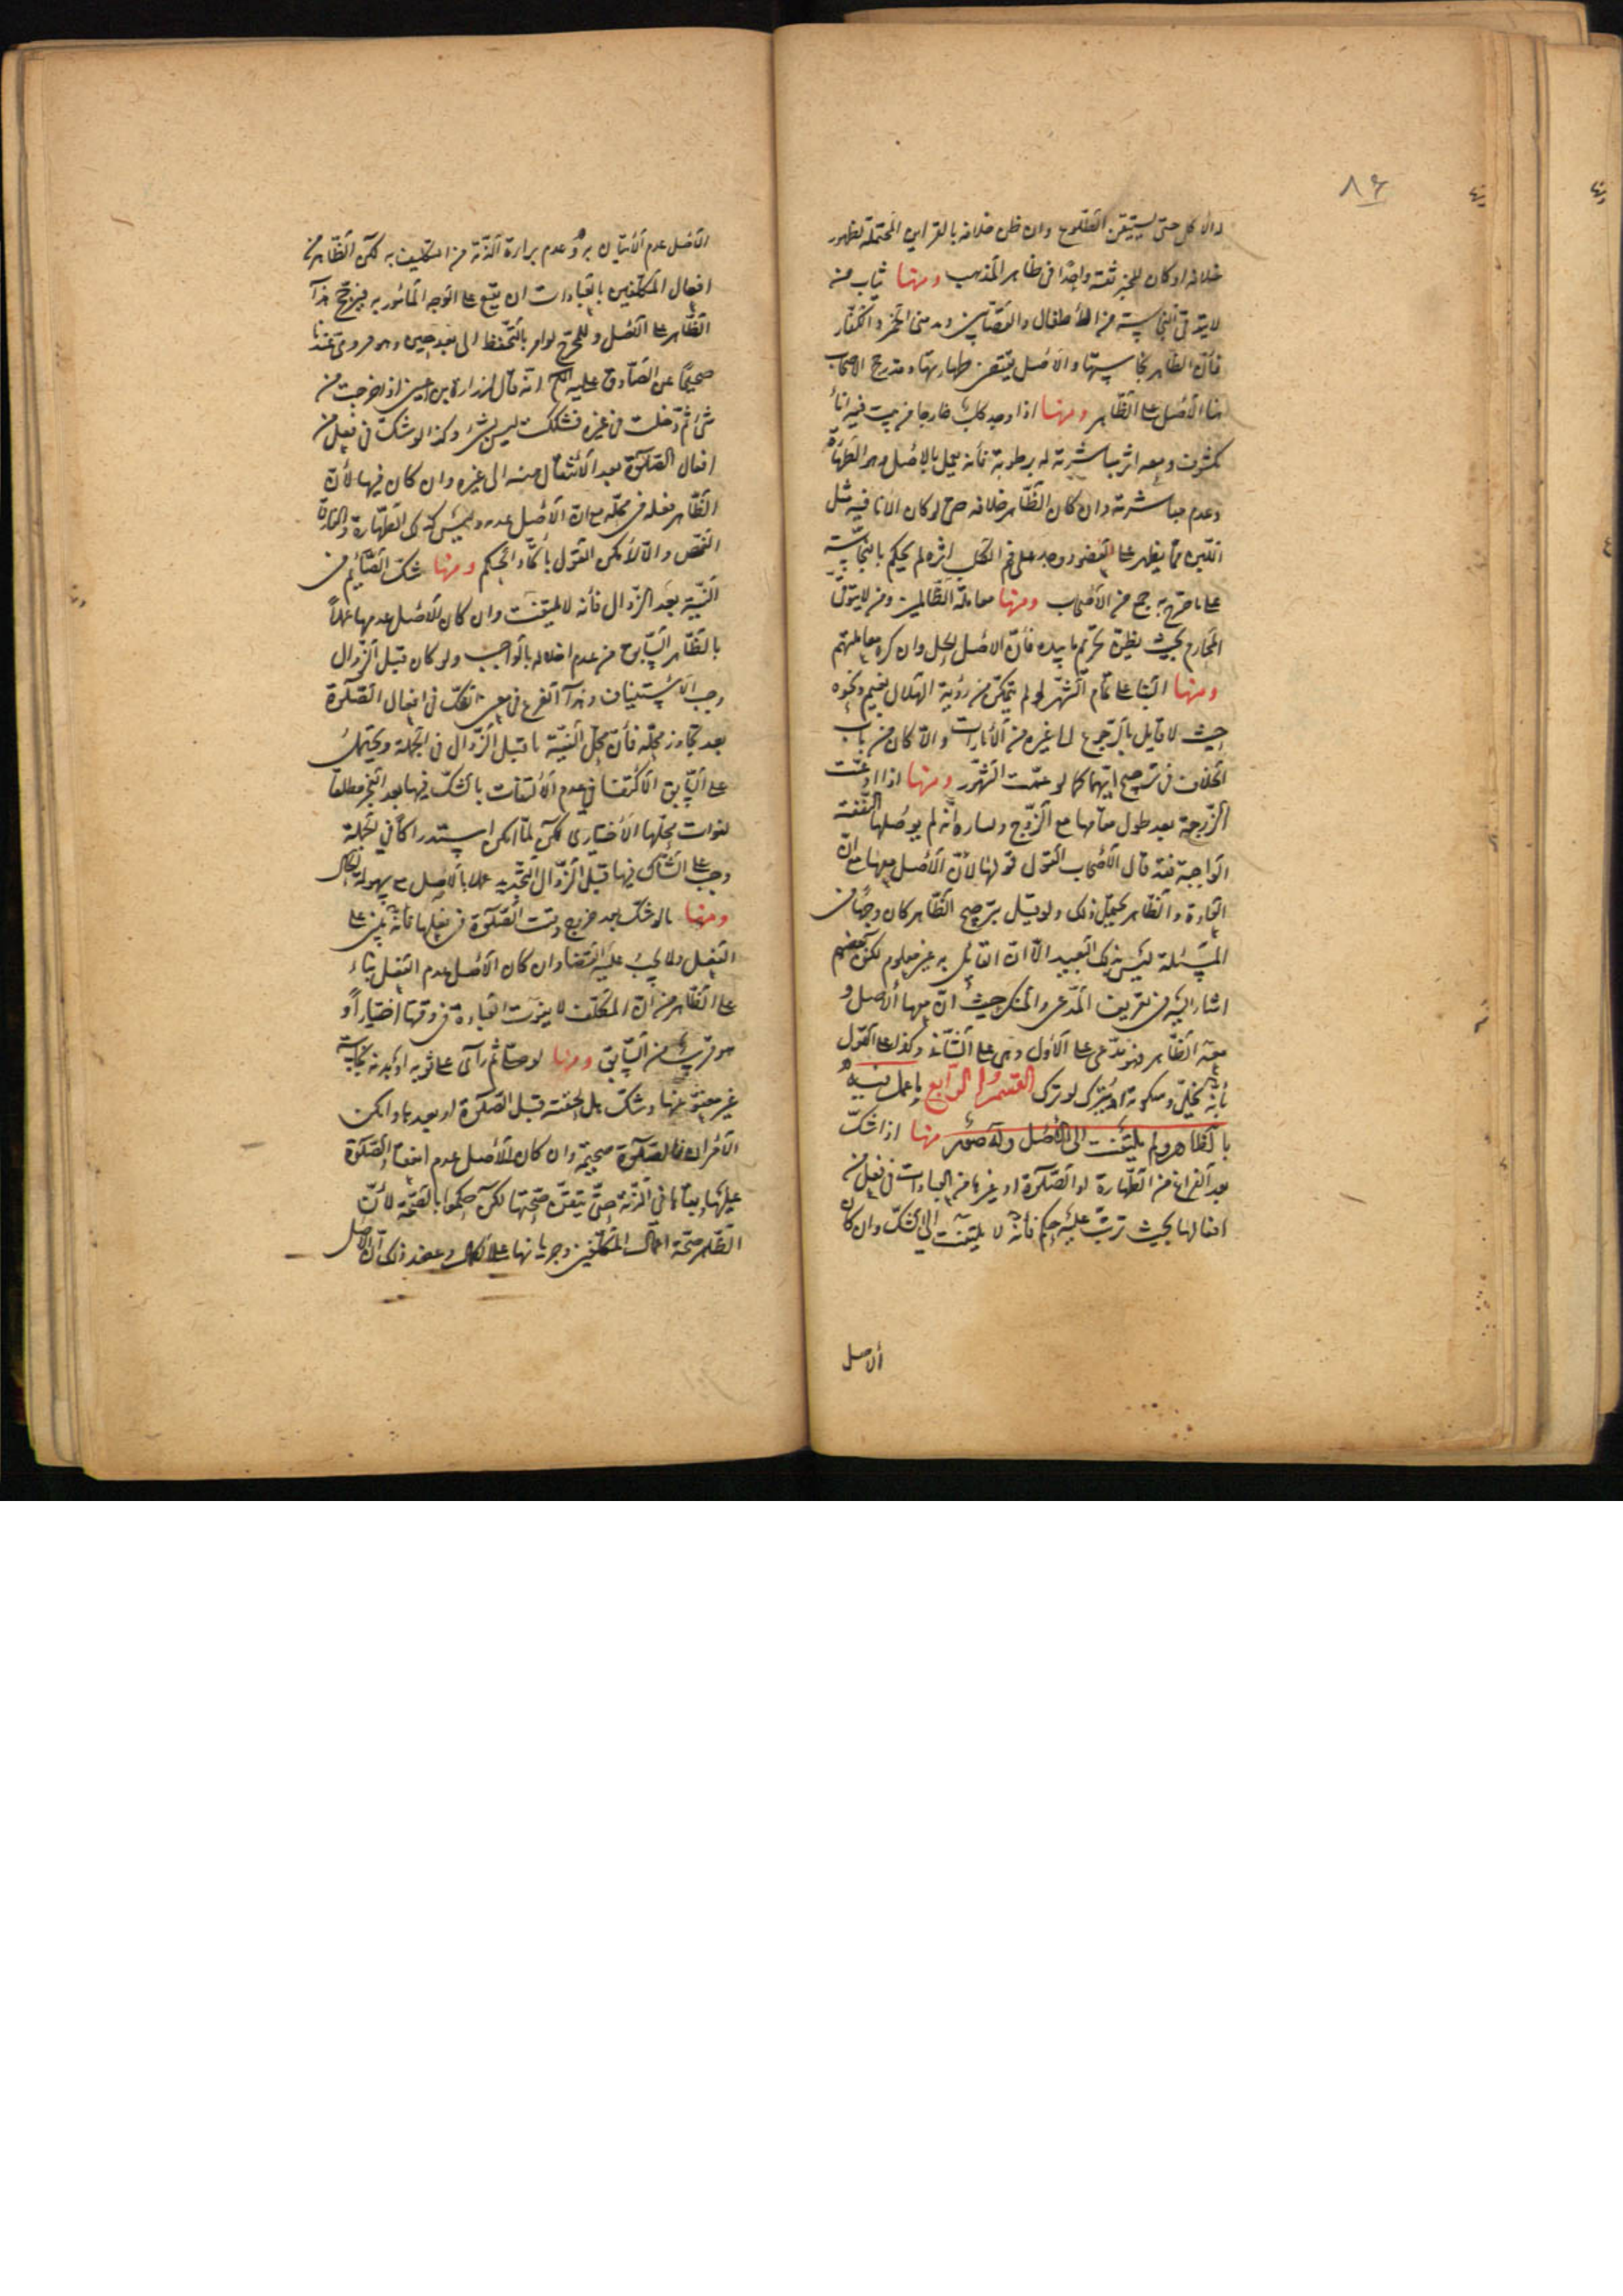 ٨٤
له الأكل حتى يستيقن الطلوع وان ظن خلافه بالقراين المحتملة لظهور
خلافه او كان المخبر ثقة واحدا في ظاهر المذهب ومنها ثياب من
لا يتوقى النجاسة من الأطفال والقصابين ومدمني الخمر والكفار
فأن الظاهر نجاستها والأصل يقتضي طهارتها وقد رجح الاصحاب
هنا الأصل على الظاهر ومنها اذا وجد كلب خارجا من بيت فيه اناء
مكشوف ومعه اثر مباشرته له برطوبة فأنه يعمل بالأصل وهو الطهارة
وعدم مباشرته وان كان الظاهر خلافه حتى لو كان الانا فيه مثل
اللبن مما يظهر على العضو ووجد على فم الكلب اثره لم يحكم بالنجاسة
على ما صرح به جمع من الأصحاب ومنها معاملة الظالمين ومن لا يتوقى
المحارم بحيث يظن تحريم ما بيده فأن الاصل الحل وان كره معاملتهم
ومنها البناء على تمام الشهر لو لم يتمكن من رؤية الهلال لغيم ونحوه
حيث لا قايل بالرجوع الى غيره من الأمارات والا كان من باب
الخلاف في ترجيح ايهما كما لو غمت الشهور ومنها اذا ادعت
الزوجة بعد طول مقامها مع الزوج ويساره انه لم يوصلها النفقة
الواجبة فقد قال الأصحاب القول قولها لأن الأصل معها مع ان
العادة والظاهر يحيل ذلك ولو قيل بترجيح الظاهر كان وجها من
المسئلة ليس بذلك البعيد الا ان القائل به غير معلوم لكن بعضهم
اشار اليه في تعريف المدعي والمنكر حيث ان معها الأصل و
معه الظاهر فهو مدعى على الأول وهي على الثاني وكذا على القول
بأنه يخلى وسكوته او يترك لو ترك القسم الرابع ما عمل فيه
بالظاهر ولم يلتفت الى الأصل وله صور منها اذا شك
بعد الفراغ من الطهارة او الصلوة او غيرها من العبادات في فعل من
افعالها بحيث ترتب عليه حكم فأنه لا يلتفت الى الشك وان كان
الأصل
الأصل عدم الأتيان به وعدم براءة الذمة من التكليف به لكن الظاهر من
افعال المكلفين بالعبادات ان تقع على الوجه المأمور به فيرجح هذا
الظاهر على الأصل وللحرج لو امر بالتحفظ الى بعد حين وهو مروي عندنا
صحيحا عن الصادق عليه السلام انه قال لزرارة بن اعين اذا خرجت من
شيء ثم دخلت في غيره فشكك ليس بشيء وكذا لو شك في فعل من
افعال الصلوة بعد الأنتقال منه الى غيره وان كان فيها لأن
الظاهر فعله في محله مع ان الأصل عدمه وليس كذلك الطهارة والفارق
النص والا لأمكن القول بأتحاد الحكم ومنها شك الصائم في
النية بعد الزوال فأنه لا يلتفت وان كان الأصل عدمها عملا
بالظاهر السابق من عدم اخلاله بالواجب ولو كان قبل الزوال
وجب الأستيناف وهذا الفرع في معنى الشك في افعال الصلوة
بعد تجاوز محله فأن محل النية ما قبل الزوال في الجملة ويحتمل
على السابق الأكتفاء في عدم الألتفات بالشك فيها بعد الفجر مطلقا
لفوات محلها الأختياري لكن لما امكن استدراكا في الجملة
وجب على الشاك فيها قبل الزوال التجديد عملا بالأصل مع سهولة الحال
ومنها ما لو شك بعد خروج وقت الصلوة في فعلها فأنه يبني على
الفعل ولا يجب عليه القضاء وان كان الأصل عدم الفعل بناء
على الظاهر من ان المكلف لا يفوت العبادة في وقتها اختيارا و
هو قريب من السابق ومنها لو صلى ثم رأى على ثوبه او بدنه نجاسة
غير معفو عنها وشك هل لحقته قبل الصلوة او بعدها وامكن
الأمران فالصلوة صحيحة وان كان الأصل عدم انعقاد الصلوة
عليها وبقاءها في الذمة حتى يتيقن صحتها لكن حكموا بالصحة لأن
الظاهر صحة اعمال المكلفين وجريانها على الكمال وعضد ذلك ان الأصل